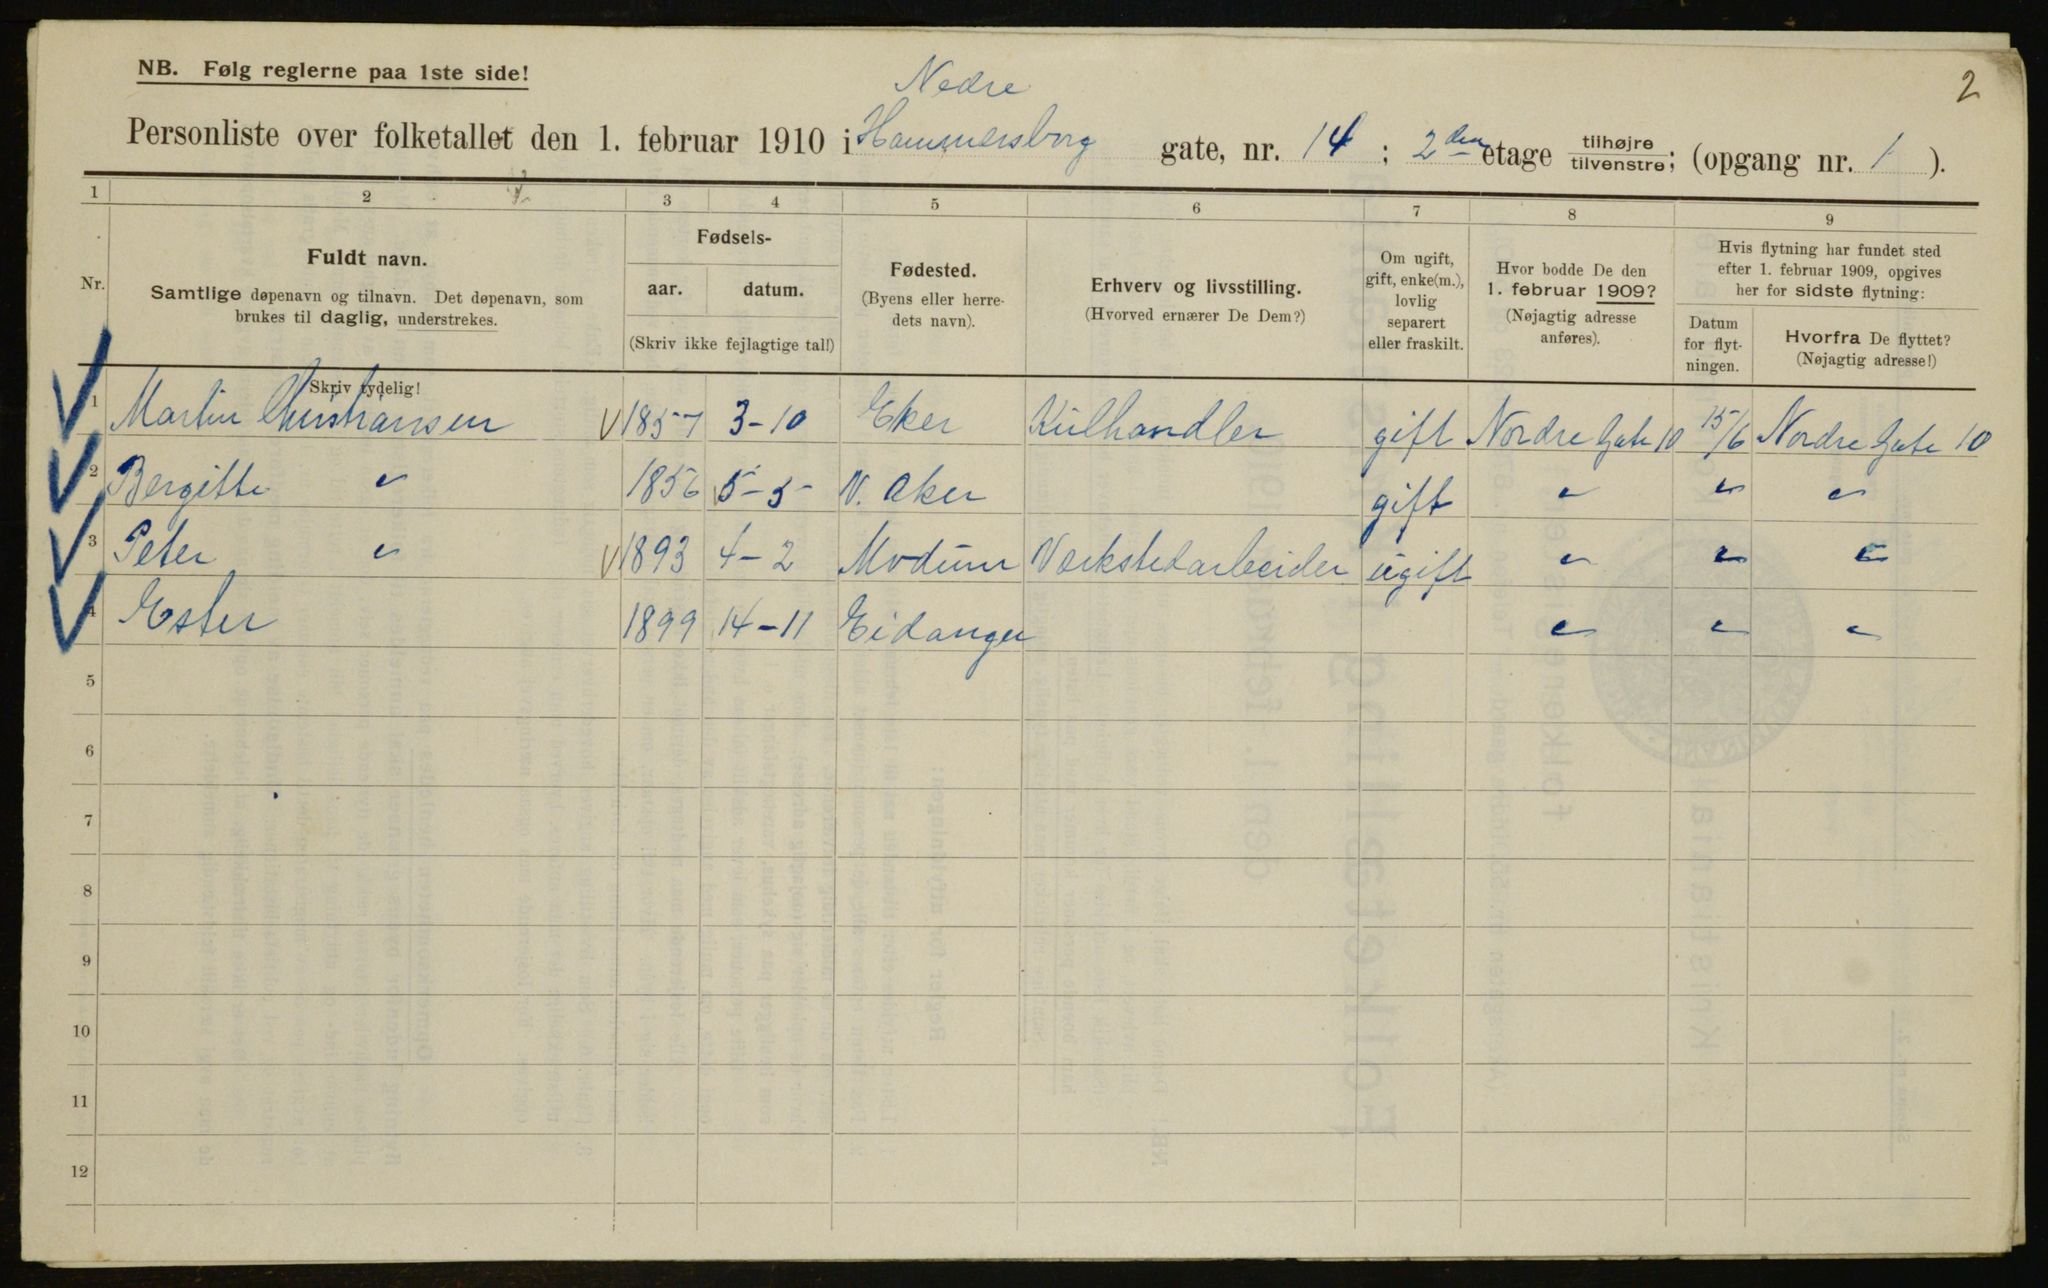 NB. Følg reglerne paa 1ste side!
2
Nedre
Personliste over folketallet den 1. februar 1910 i Hammersborg gate, nr. 14 ; 2den etage tilhøjre tilvenstre; (opgang nr. 1 ).
1 2 3 4 5 6 7 8 9
Nr.
Fuldt navn.
Samtlige døpenavn og tilnavn. Det døpenavn, som
brukes til daglig, understrekes.
Skriv tydelig!
Fødsels-
aar. datum.
(Skriv ikke fejlagtige tal!)
Fødested.
(Byens eller herre-
dets navn).
Erhverv og livsstilling.
(Hvorved ernærer De Dem?)
Om ugift,
gift, enke(m.),
lovlig
separert
eller fraskilt.
Hvor bodde De den
1. februar 1909?
(Nøjagtig adresse
anføres).
Hvis flytning har fundet sted
efter 1. februar 1909, opgives
her for sidste flytning:
Datum
for flyt-
ningen.
Hvorfra De flyttet?
(Nøjagtig adresse!)
1 Martin Christiansen 1857 3-10 Eker Kulhandler gift Nordre Gate 10 15/6 Nordre Gate 10
2 Bergitte " 1856 5-5 V. Aker gift " " "
3 Peter " 1893 4-2 Modum Værkstedarbeider ugift " " "
4 Ester 1899 14-11 Eidanger " " "
5
6
7
8
9
10
11
12